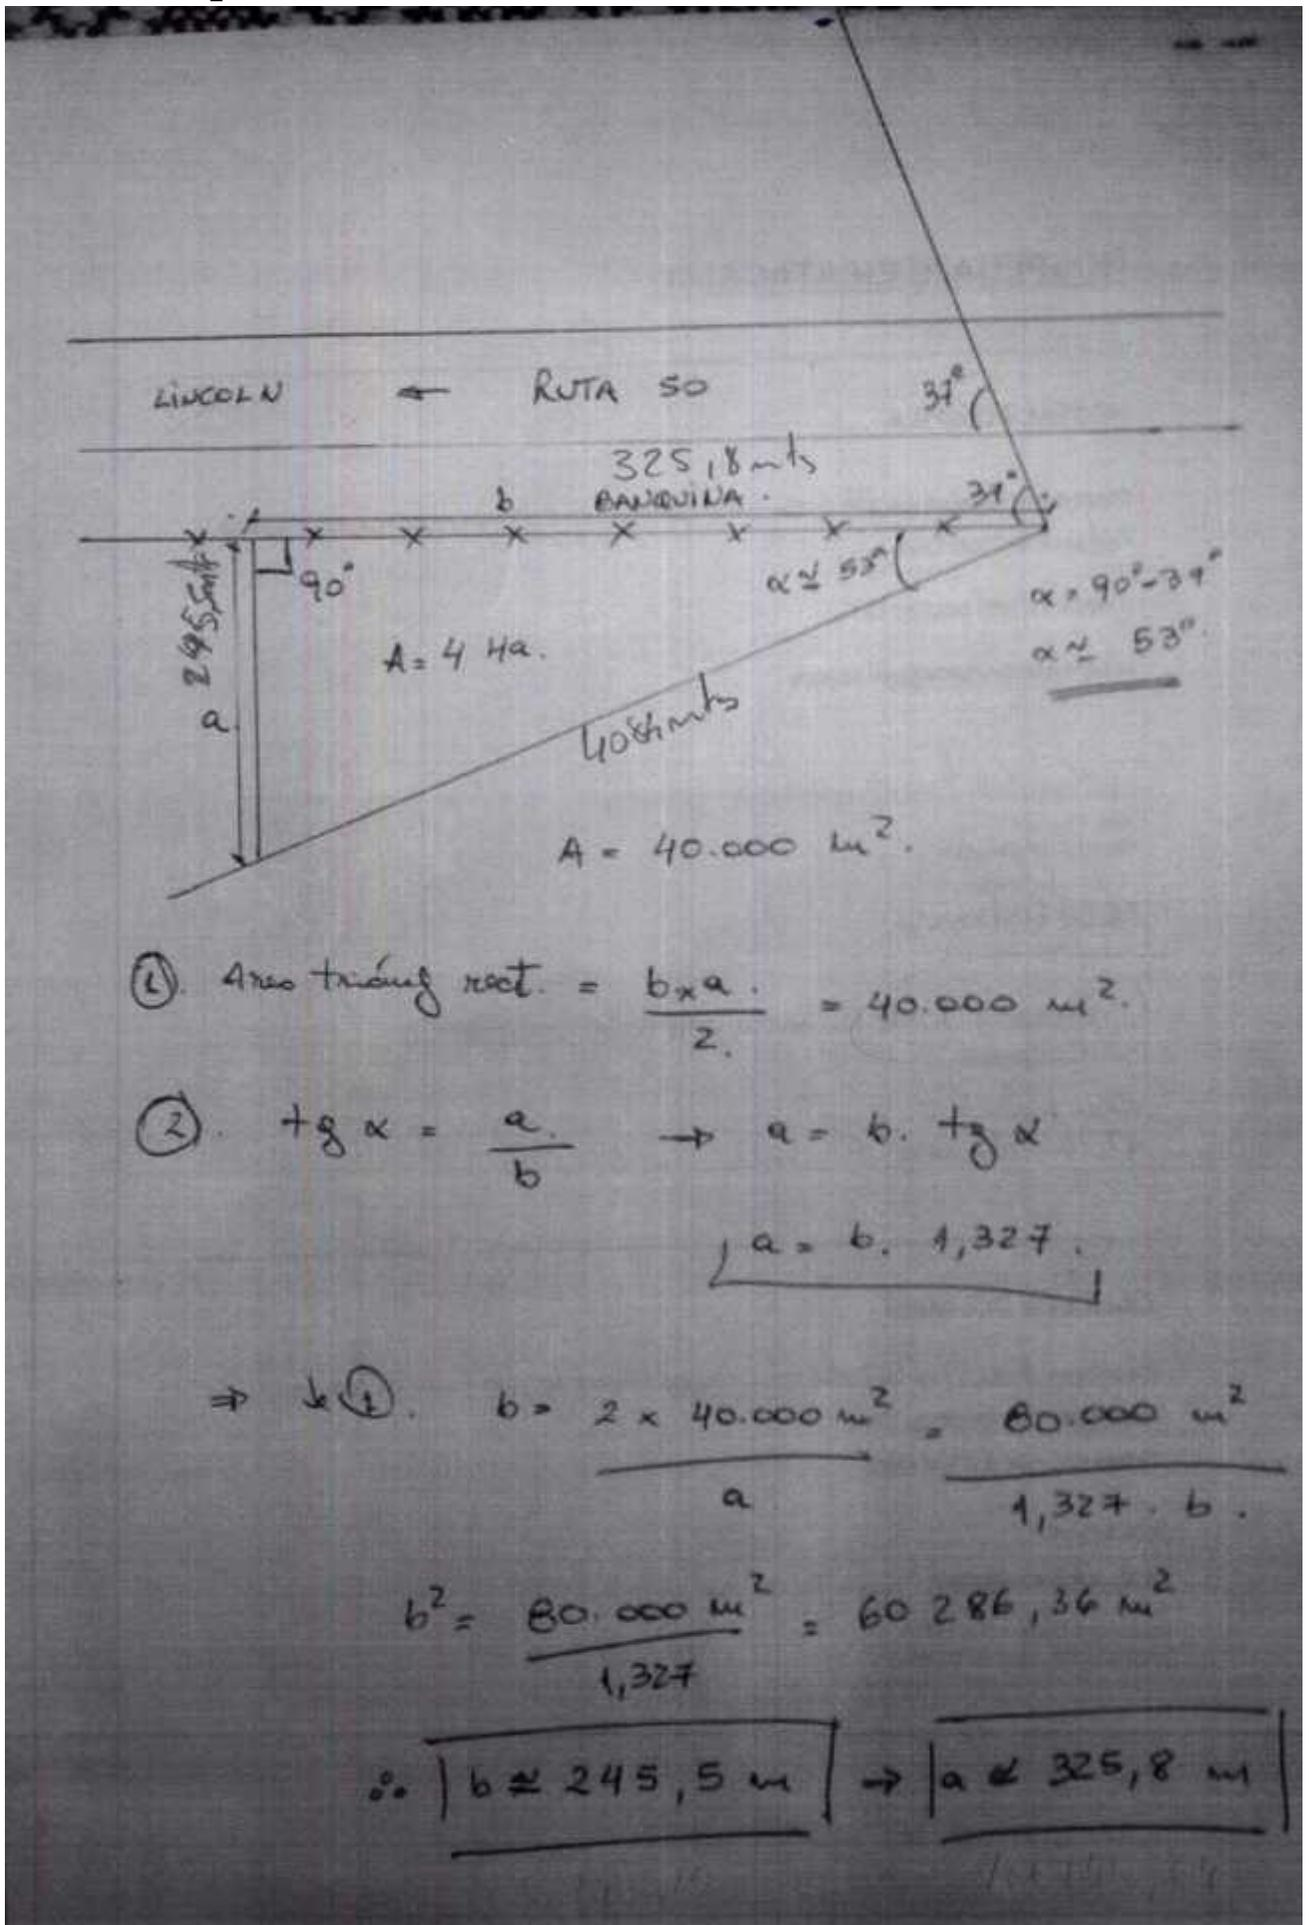 LINCOLN ← RUTA 50
37°
325,8 mts
b BANQUINA.
37°
90°
α ≃ 53°
α = 90° - 37°
α ≃ 53°.
a 245,5 mts
A = 4 Ha.
408 mts
A = 40.000 m².
①. Area triáng rect. = b x a. / 2. = 40.000 m².
②. tg α = a. / b → a = b. tg α
a = b. 1,327.
⇒ ①. b = 2 x 40.000 m² / a = 80.000 m² / 1,327 . b.
b² = 80.000 m² / 1,327 = 60 286,36 m²
∴ b ≃ 245,5 m → a ≃ 325,8 m